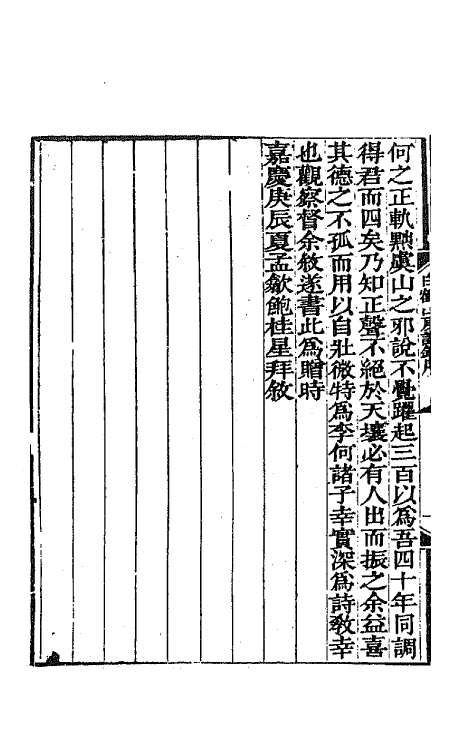 何之正軌黜虞山之邪說不覺躍起三百以爲吾四十年同調
得君而四矣乃知正聲不絕於天壤必有人出而振之余益喜
其德之不孤而用以自壯微特爲李何諸子幸實深爲詩敎幸
也觀察督余敘遂書此爲贈時
嘉慶庚辰夏孟歙鮑桂星拜敘